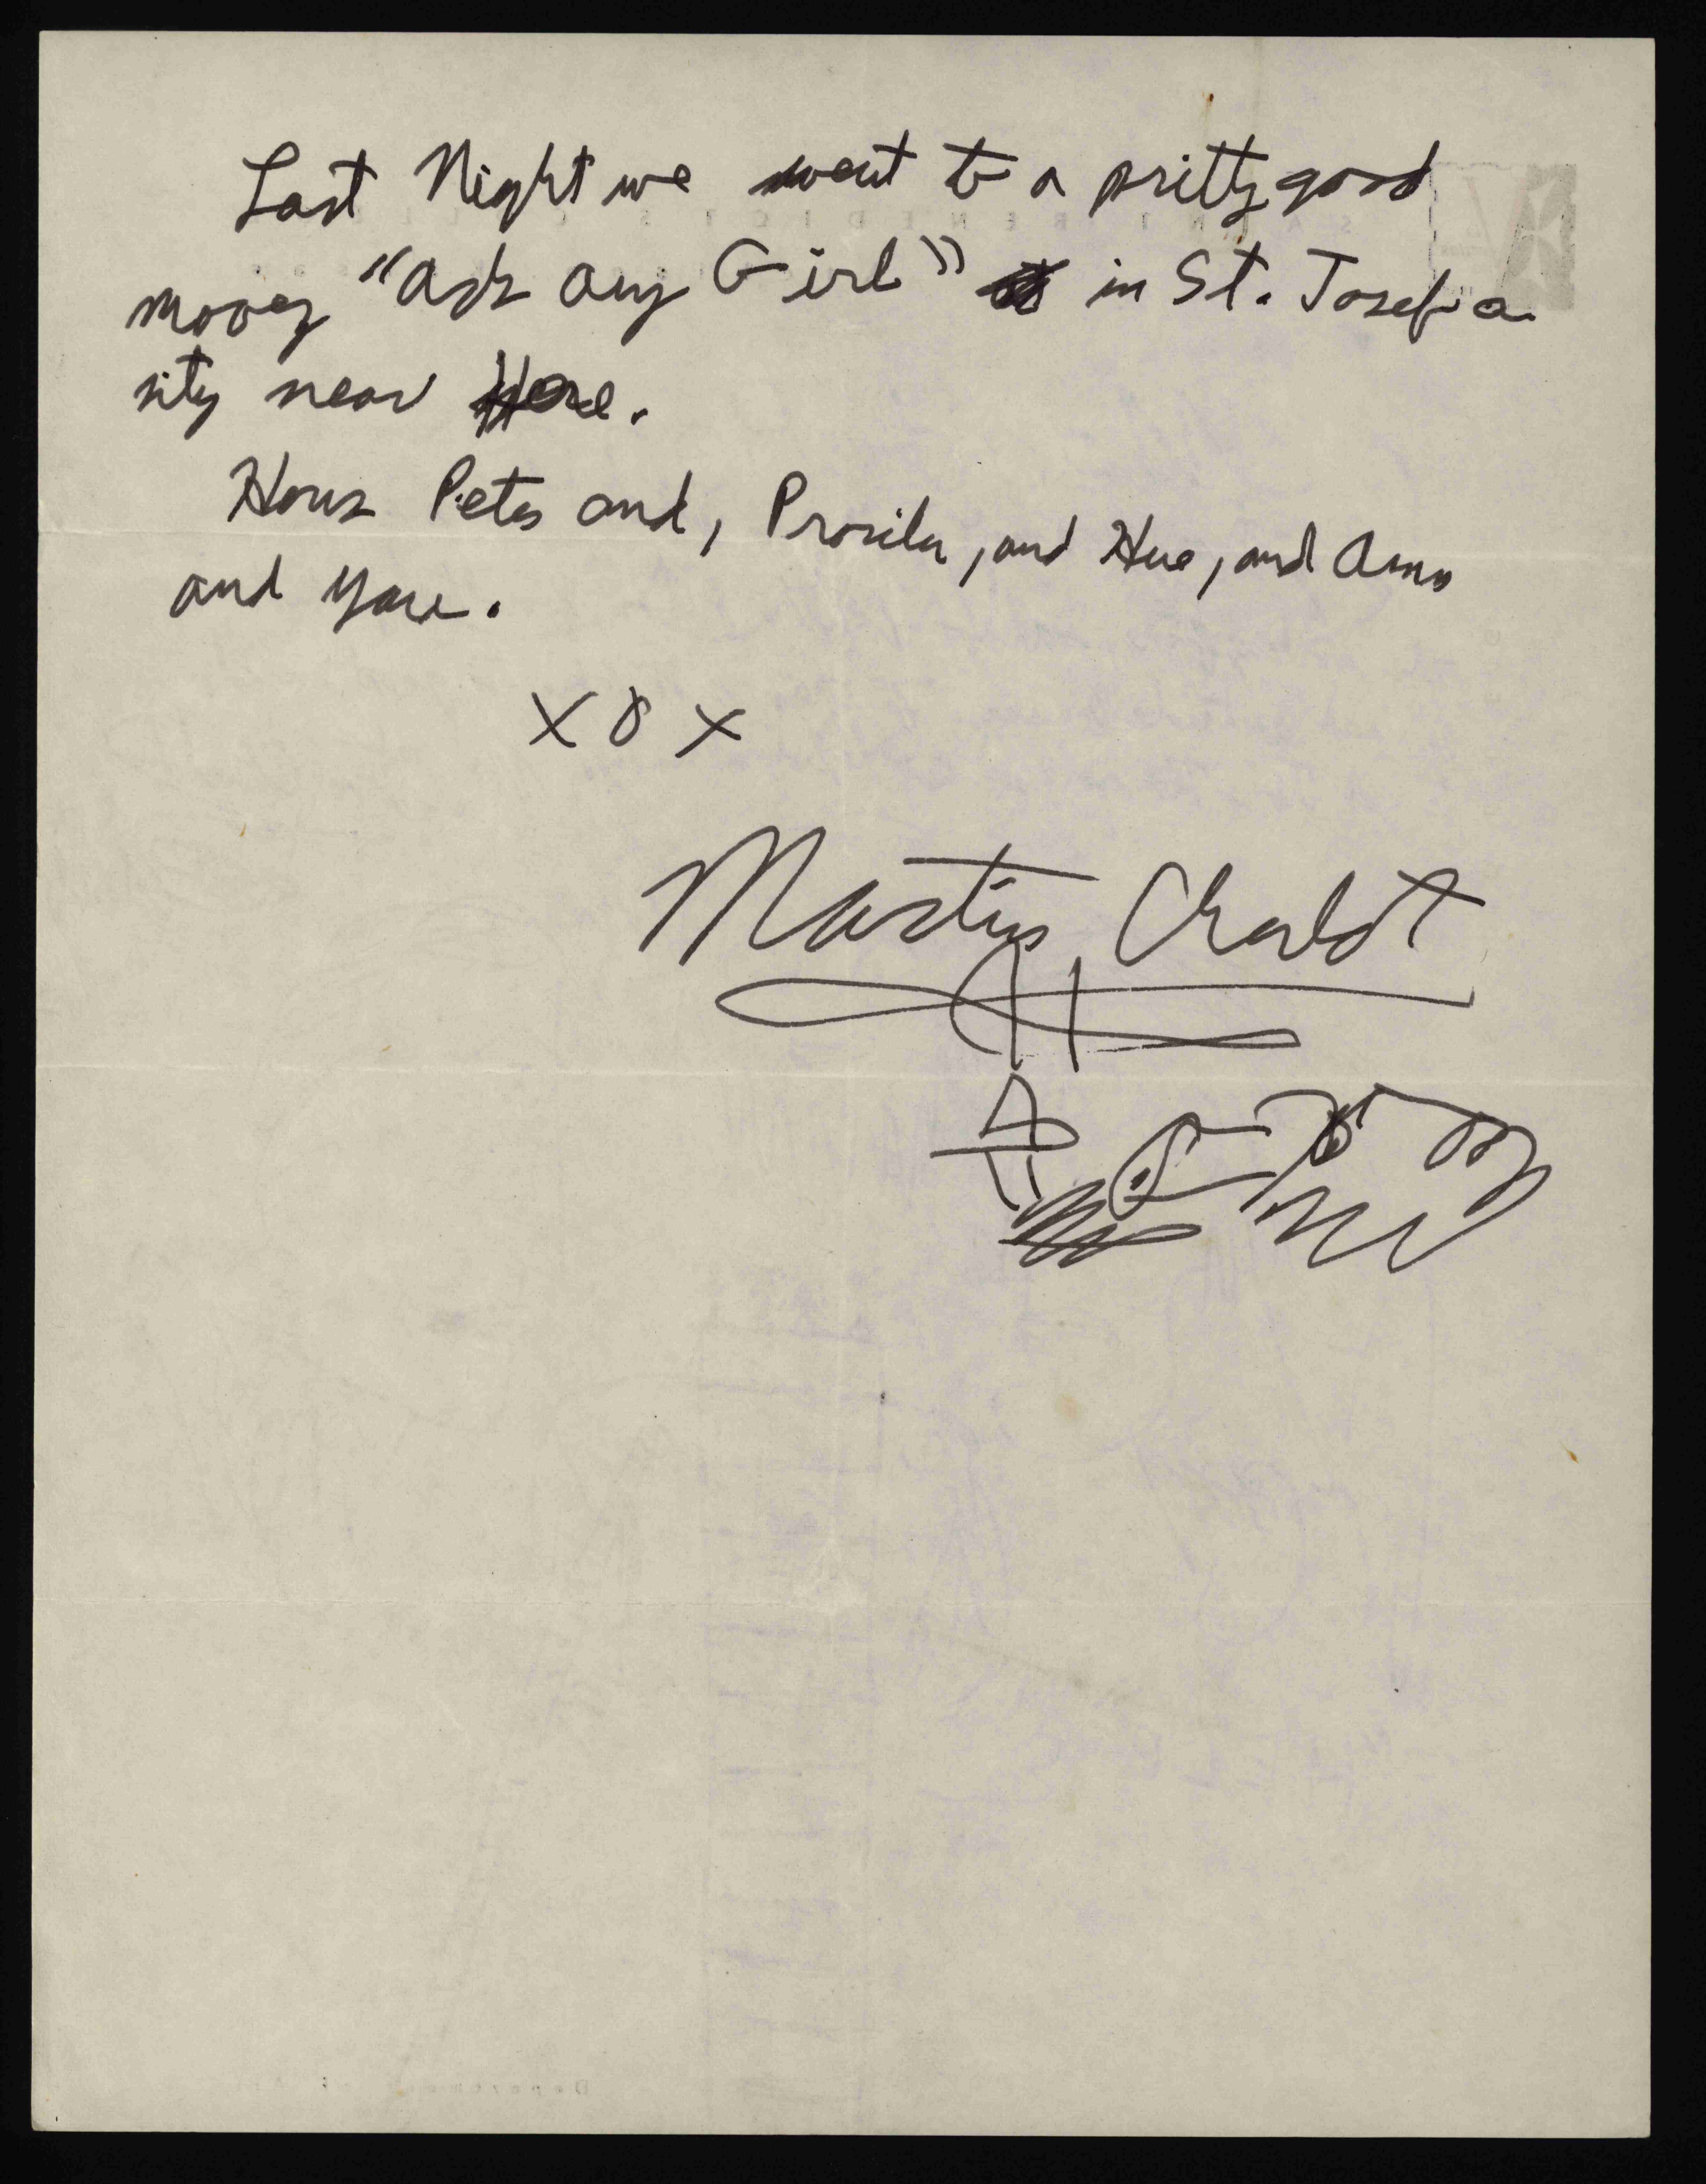 Last Night we went to a pritty good
moovey "Ask any Girl" in St. Josef a
sity near Here.
Hows Peter and, Prosila, and Hue, and Anna
and you.
X O X
Martin